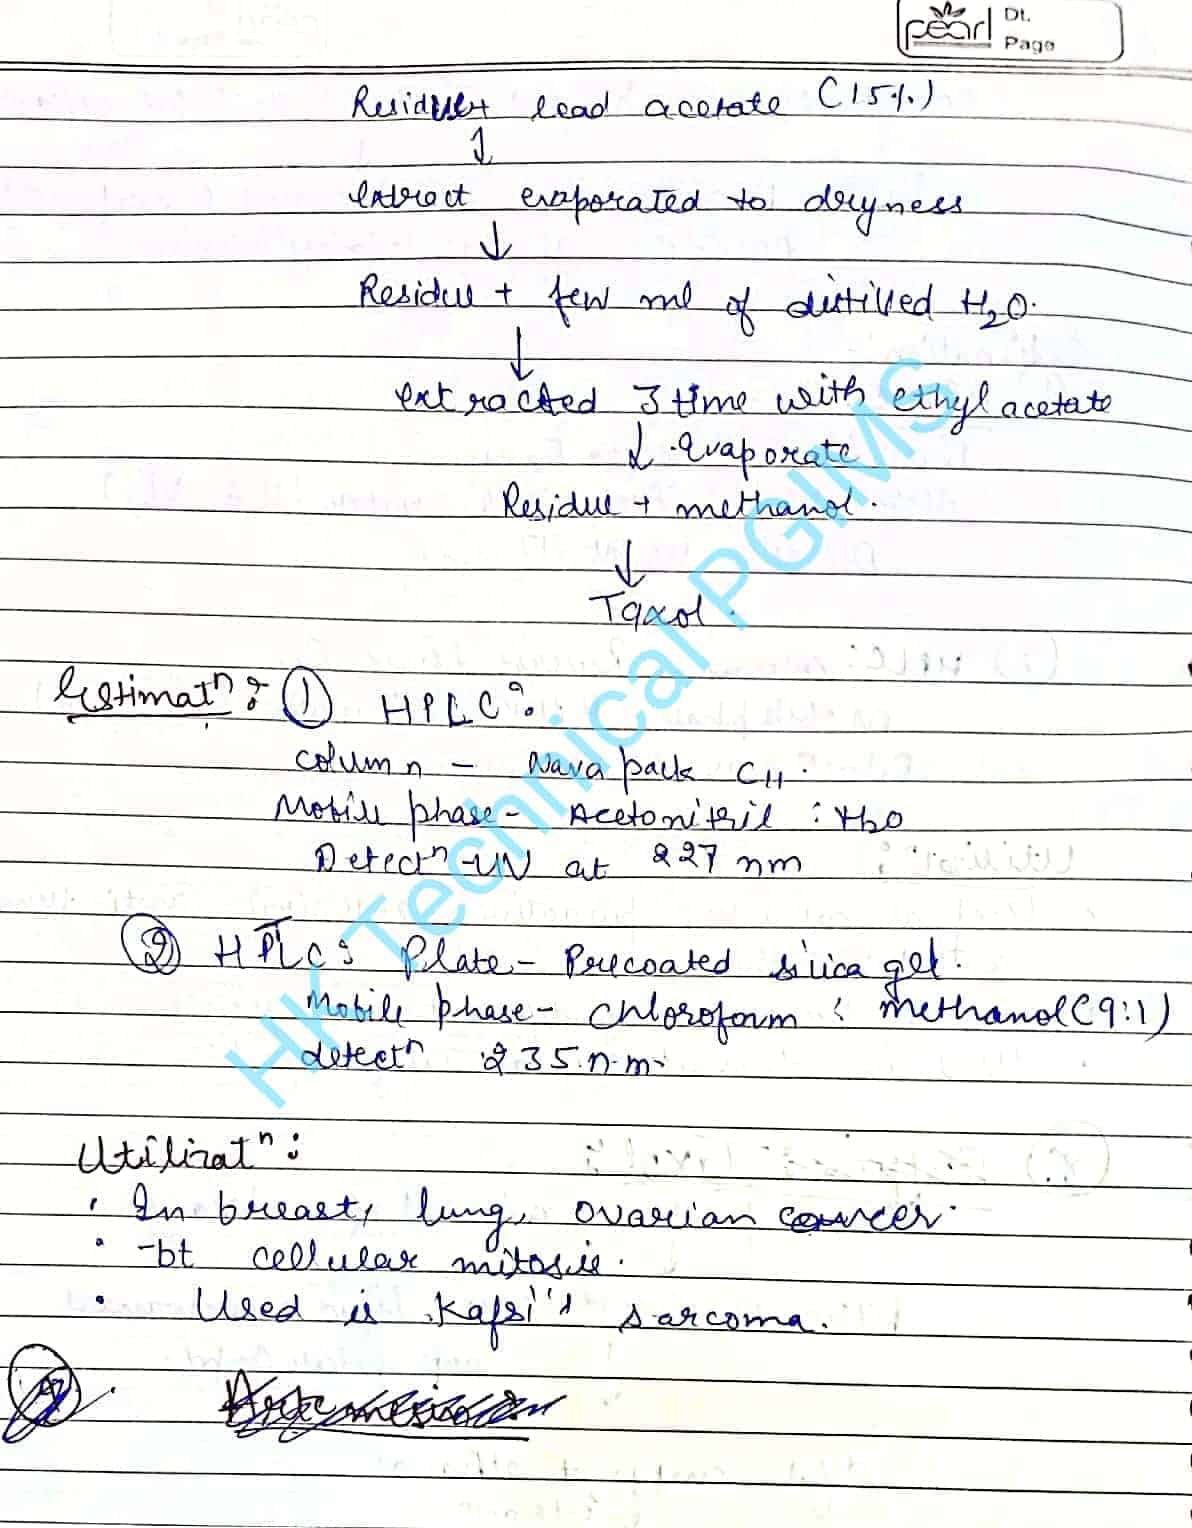 pearl Dt.
Page
Residue + lead acetate (15%)
↓
extract evaporated to dryness
↓
Residue + few ml of distilled H₂O.
↓
extracted 3 time with ethyl acetate
↓ evaporate
Residue + methanol.
↓
Taxol.
Estimatⁿ: ① HPLC:
column - Nava pack C11.
Mobile phase - Acetonitril : H₂O
Detectⁿ - UV at 227 nm
② HPTLC: Plate - Precoated silica gel.
Mobile phase - chloroform : methanol (9:1)
detectⁿ 235 n.m.
Utilizatⁿ:
• In breast, lung, ovarian cancer.
• -bt cellular mitosis.
• Used is Kapsi's sarcoma.
HK Technical PGIMS